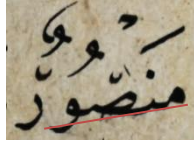 مَنصُورٌ